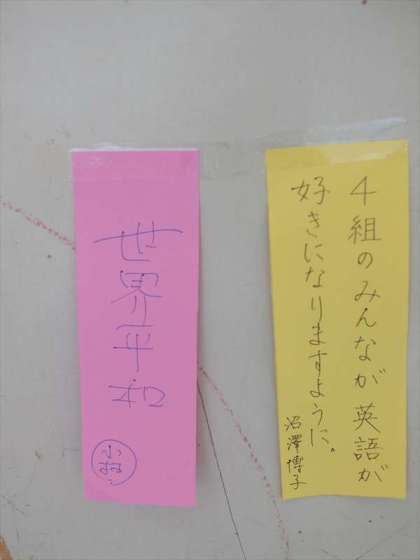 4組のみんなが英語が
好きになりますように。
沼澤博子
世界平和